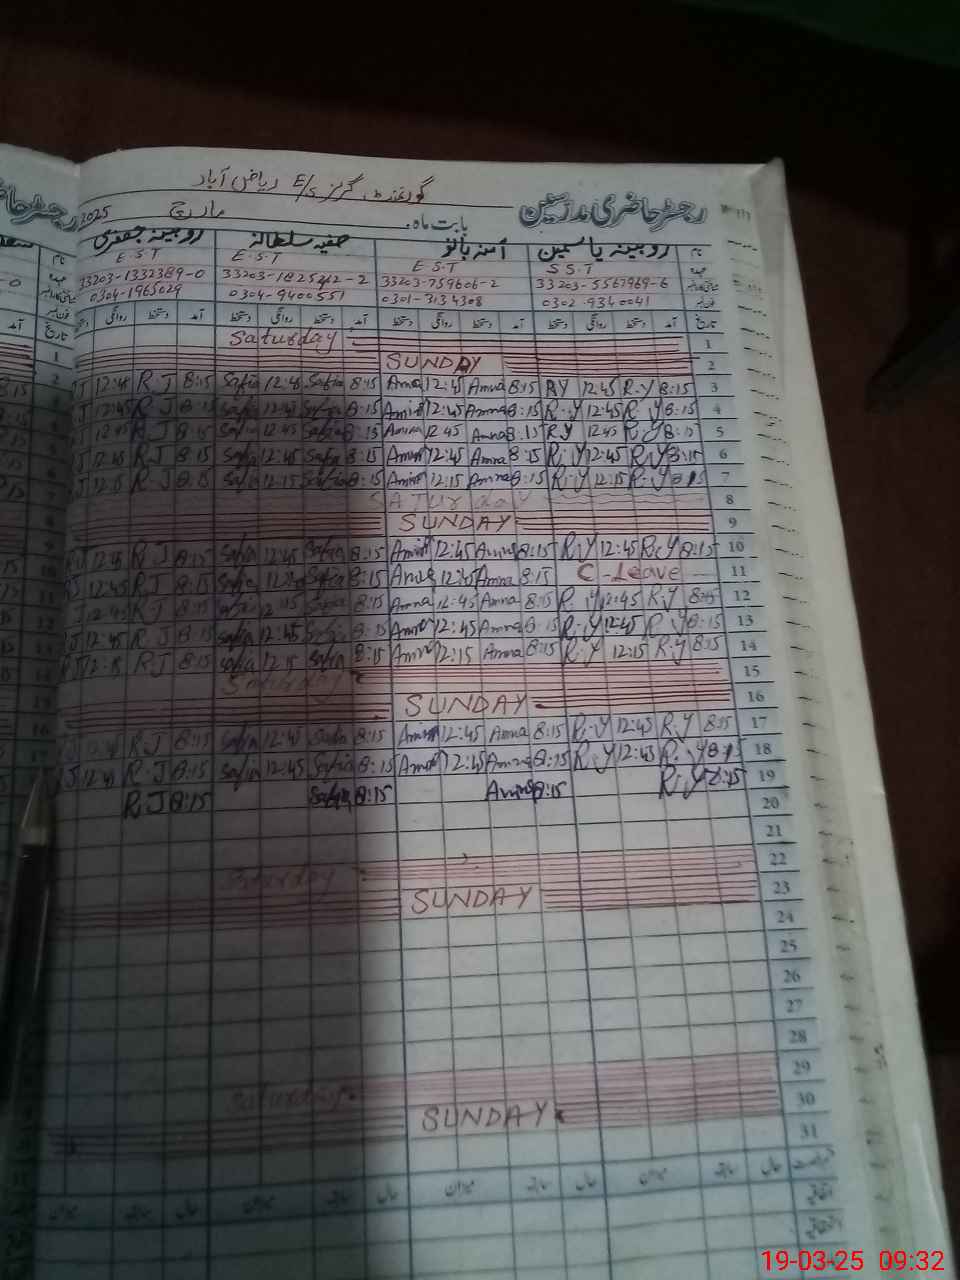 گورنمنٹ گرلز E/S ریاض آباد
رجسٹر حاضری مدرسین
بابت ماہ مارچ 2025
نام روبینہ یاسمین آمنہ بانو صفیہ سلطانہ روبینہ جعفری
عہدہ S.S.T E.S.T E.S.T E.S.T
33203-5567969-6 33203-759606-2 33203-1825212-2 33203-1332389-0
0302-9340041 0301-3134308 0304-9400551 0304-1965029
تاریخ آمد دستخط روانگی دستخط آمد دستخط روانگی دستخط آمد دستخط روانگی دستخط آمد دستخط روانگی
Saturday 1
SUNDAY 2
12:45 R J 8:15 Safia 12:45 Safia 8:15 Amna 12:45 Amna 8:15 R.Y 12:45 R.Y 8:15 3
12:45 R J 8:15 Safia 12:45 Safia 8:15 Amna 12:45 Amna 8:15 R.Y 12:45 R.Y 8:15 4
12:45 R J 8:15 Safia 12:45 Safia 8:15 Amna 12:45 Amna 8:15 R.Y 12:45 R.Y 8:15 5
12:45 R J 8:15 Safia 12:45 Safia 8:15 Amna 12:45 Amna 8:15 R.Y 12:45 R.Y 8:15 6
12:15 R J 8:15 Safia 12:15 Safia 8:15 Amna 12:15 Amna 8:15 R.Y 12:15 R.Y 8:15 7
SATURDAY 8
SUNDAY 9
12:45 R J 8:15 Safia 12:45 Safia 8:15 Amna 12:45 Amna 8:15 R.Y 12:45 R.Y 8:15 10
12:45 R J 8:15 Safia 12:45 Safia 8:15 Amna 12:45 Amna 8:15 C-Leave 11
12:45 R J 8:15 Safia 12:15 Safia 8:15 Amna 12:45 Amna 8:15 R.Y 12:45 R.Y 8:15 12
12:45 R J 8:15 Safia 12:45 Safia 8:15 Amna 12:45 Amna 8:15 R.Y 12:45 R.Y 8:15 13
12:15 R J 8:15 Safia 12:15 Safia 8:15 Amna 12:15 Amna 8:15 R.Y 12:15 R.Y 8:15 14
Saturday 15
SUNDAY 16
R J 8:15 Safia 12:45 Safia 8:15 Amna 12:45 Amna 8:15 R.Y 12:45 R.Y 8:15 17
12:45 R.J 8:15 Safia 12:45 Safia 8:15 Amna 12:45 Amna 8:15 R.Y 12:45 R.Y 8:15 18
R.J 8:15 Safia 8:15 Amna 8:15 R.Y 8:15 19
20
21
Saturday 22
SUNDAY 23
24
25
26
27
28
Saturday 29
SUNDAY 30
31
حال سابقہ میزان حال سابقہ میزان حال سابقہ میزان
اتفاقیہ
19-03-25 09:32